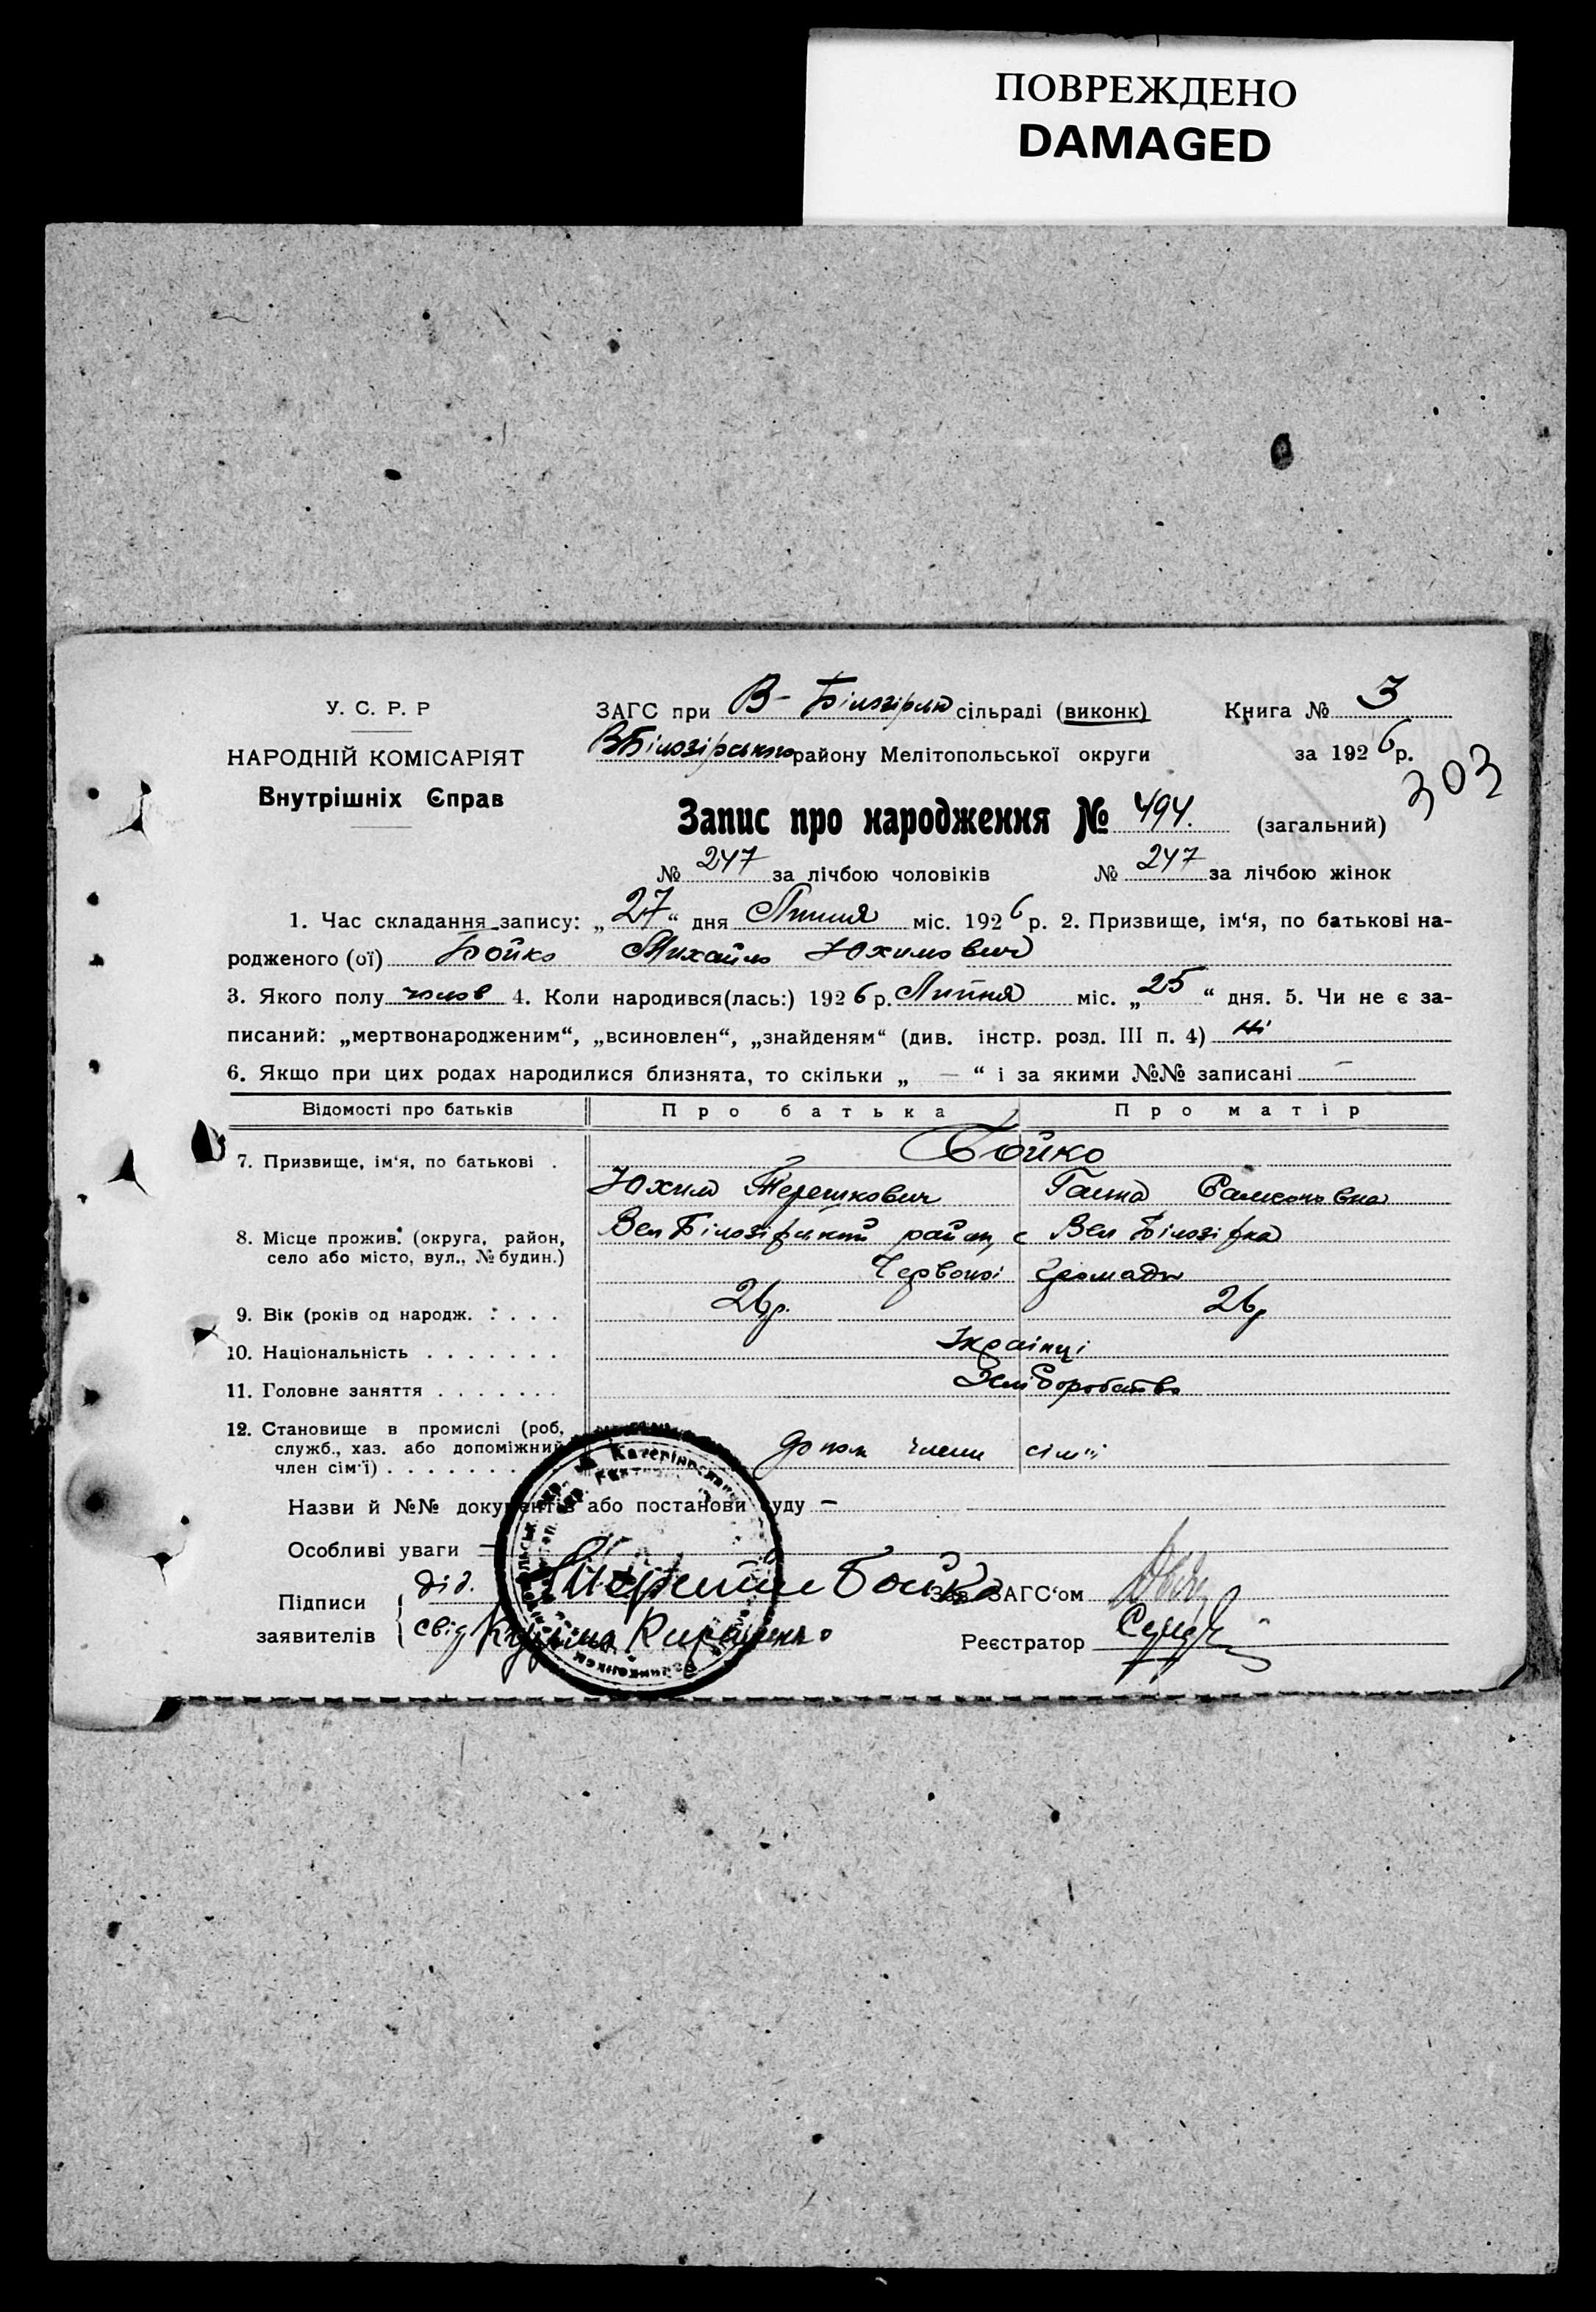 ПОВРЕЖДЕНО
DAMAGED
У. С. Р. Р
НАРОДНІЙ КОМІСАРІЯТ
Внутрішніх Справ
ЗАГС при В- Білозірк сільраді (виконк)
ВБілозірського району Мелітопольської округи
Книга № 3
за 1926 р.
303
Запис про народження № 494. (загальний)
№ 247 за лічбою чоловіків № 247 за лічбою жінок
1. Час складання запису: „27“ дня Липня міс. 1926 р. 2. Призвище, ім‘я, по батькові на-
родженого (ої) Бойко Михайло Юхимович
3. Якого полу чолов 4. Коли народився(лась:) 1926 р. Липня міс. „25“ дня. 5. Чи не є за-
писаний: „мертвонародженим“, „всиновлен“, „знайденям“ (див. інстр. розд. III п. 4) ні
6. Якщо при цих родах народилися близнята, то скільки „ — “ і за якими №№ записані —
Відомості про батьків Про батька Про матір
7. Призвище, ім‘я, по батькові . Бойко
Юхим Терешкович Ганна
8. Місце прожив. (округа, район,
село або місто, вул., № будин.)
Вел Білозірський район, с Вел Білозірка
Червоної Громади
9. Вік (років од народж. : . . . 26 р. 26 р
10. Національність . . . . . . . Українці
11. Головне заняття . . . . . . . Хліборобство
12. Становище в промислі (роб,
служб., хаз. або допоміжний
член сім‘ї) . . . . . . .
допом члени сім'ї
Назви й №№ документів або постанови суду —
Особливі уваги —
Підписи
заявителів
дід. Терешко Бойко
свід Кузьма
Зав. ЗАГС‘ом
Реєстратор